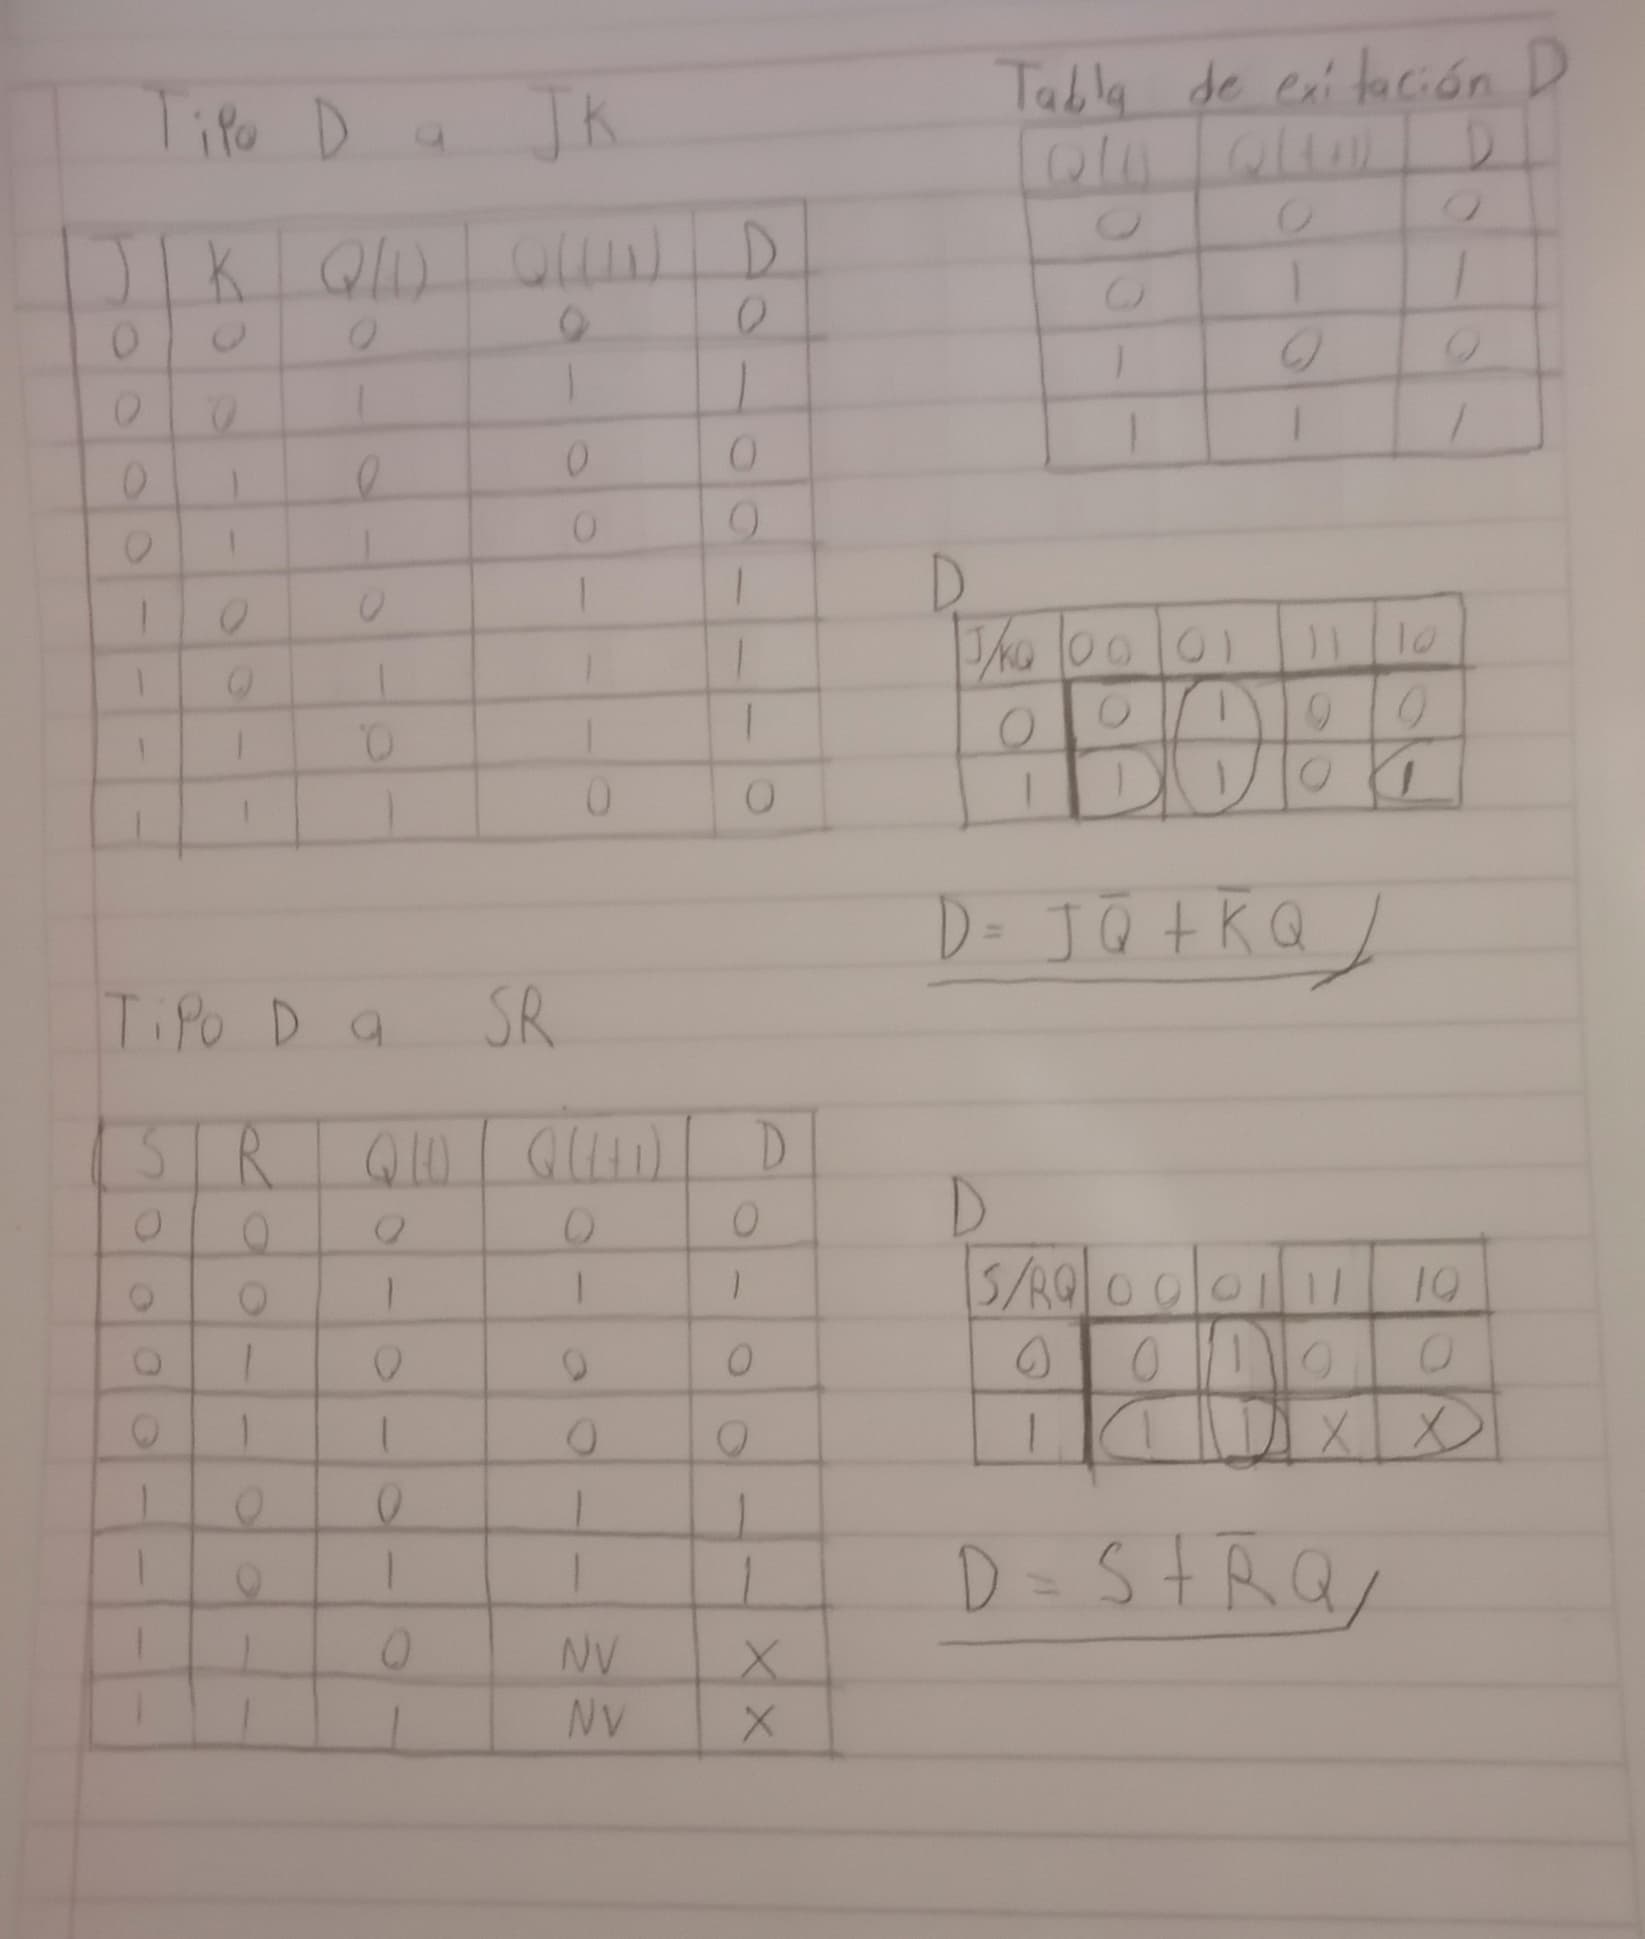 Tipo D a JK
J K Q(t) Q(t+1) D
0 0 0 0 0
0 0 1 1 1
0 1 0 0 0
0 1 1 0 0
1 0 0 1 1
1 0 1 1 1
1 1 0 1 1
1 1 1 0 0
Tabla de exitación D
Q(t) Q(t+1) D
0 0 0
0 1 1
1 0 0
1 1 1
D
J/KQ 00 01 11 10
0 0 1 0 0
1 1 1 0 1
D = JQ̄ + K̄Q
Tipo D a SR
S R Q(t) Q(t+1) D
0 0 0 0 0
0 0 1 1 1
0 1 0 0 0
0 1 1 0 0
1 0 0 1 1
1 0 1 1 1
1 1 0 NV X
1 1 1 NV X
D
S/RQ 00 01 11 10
0 0 1 0 0
1 1 1 X X
D = S + R̄Q